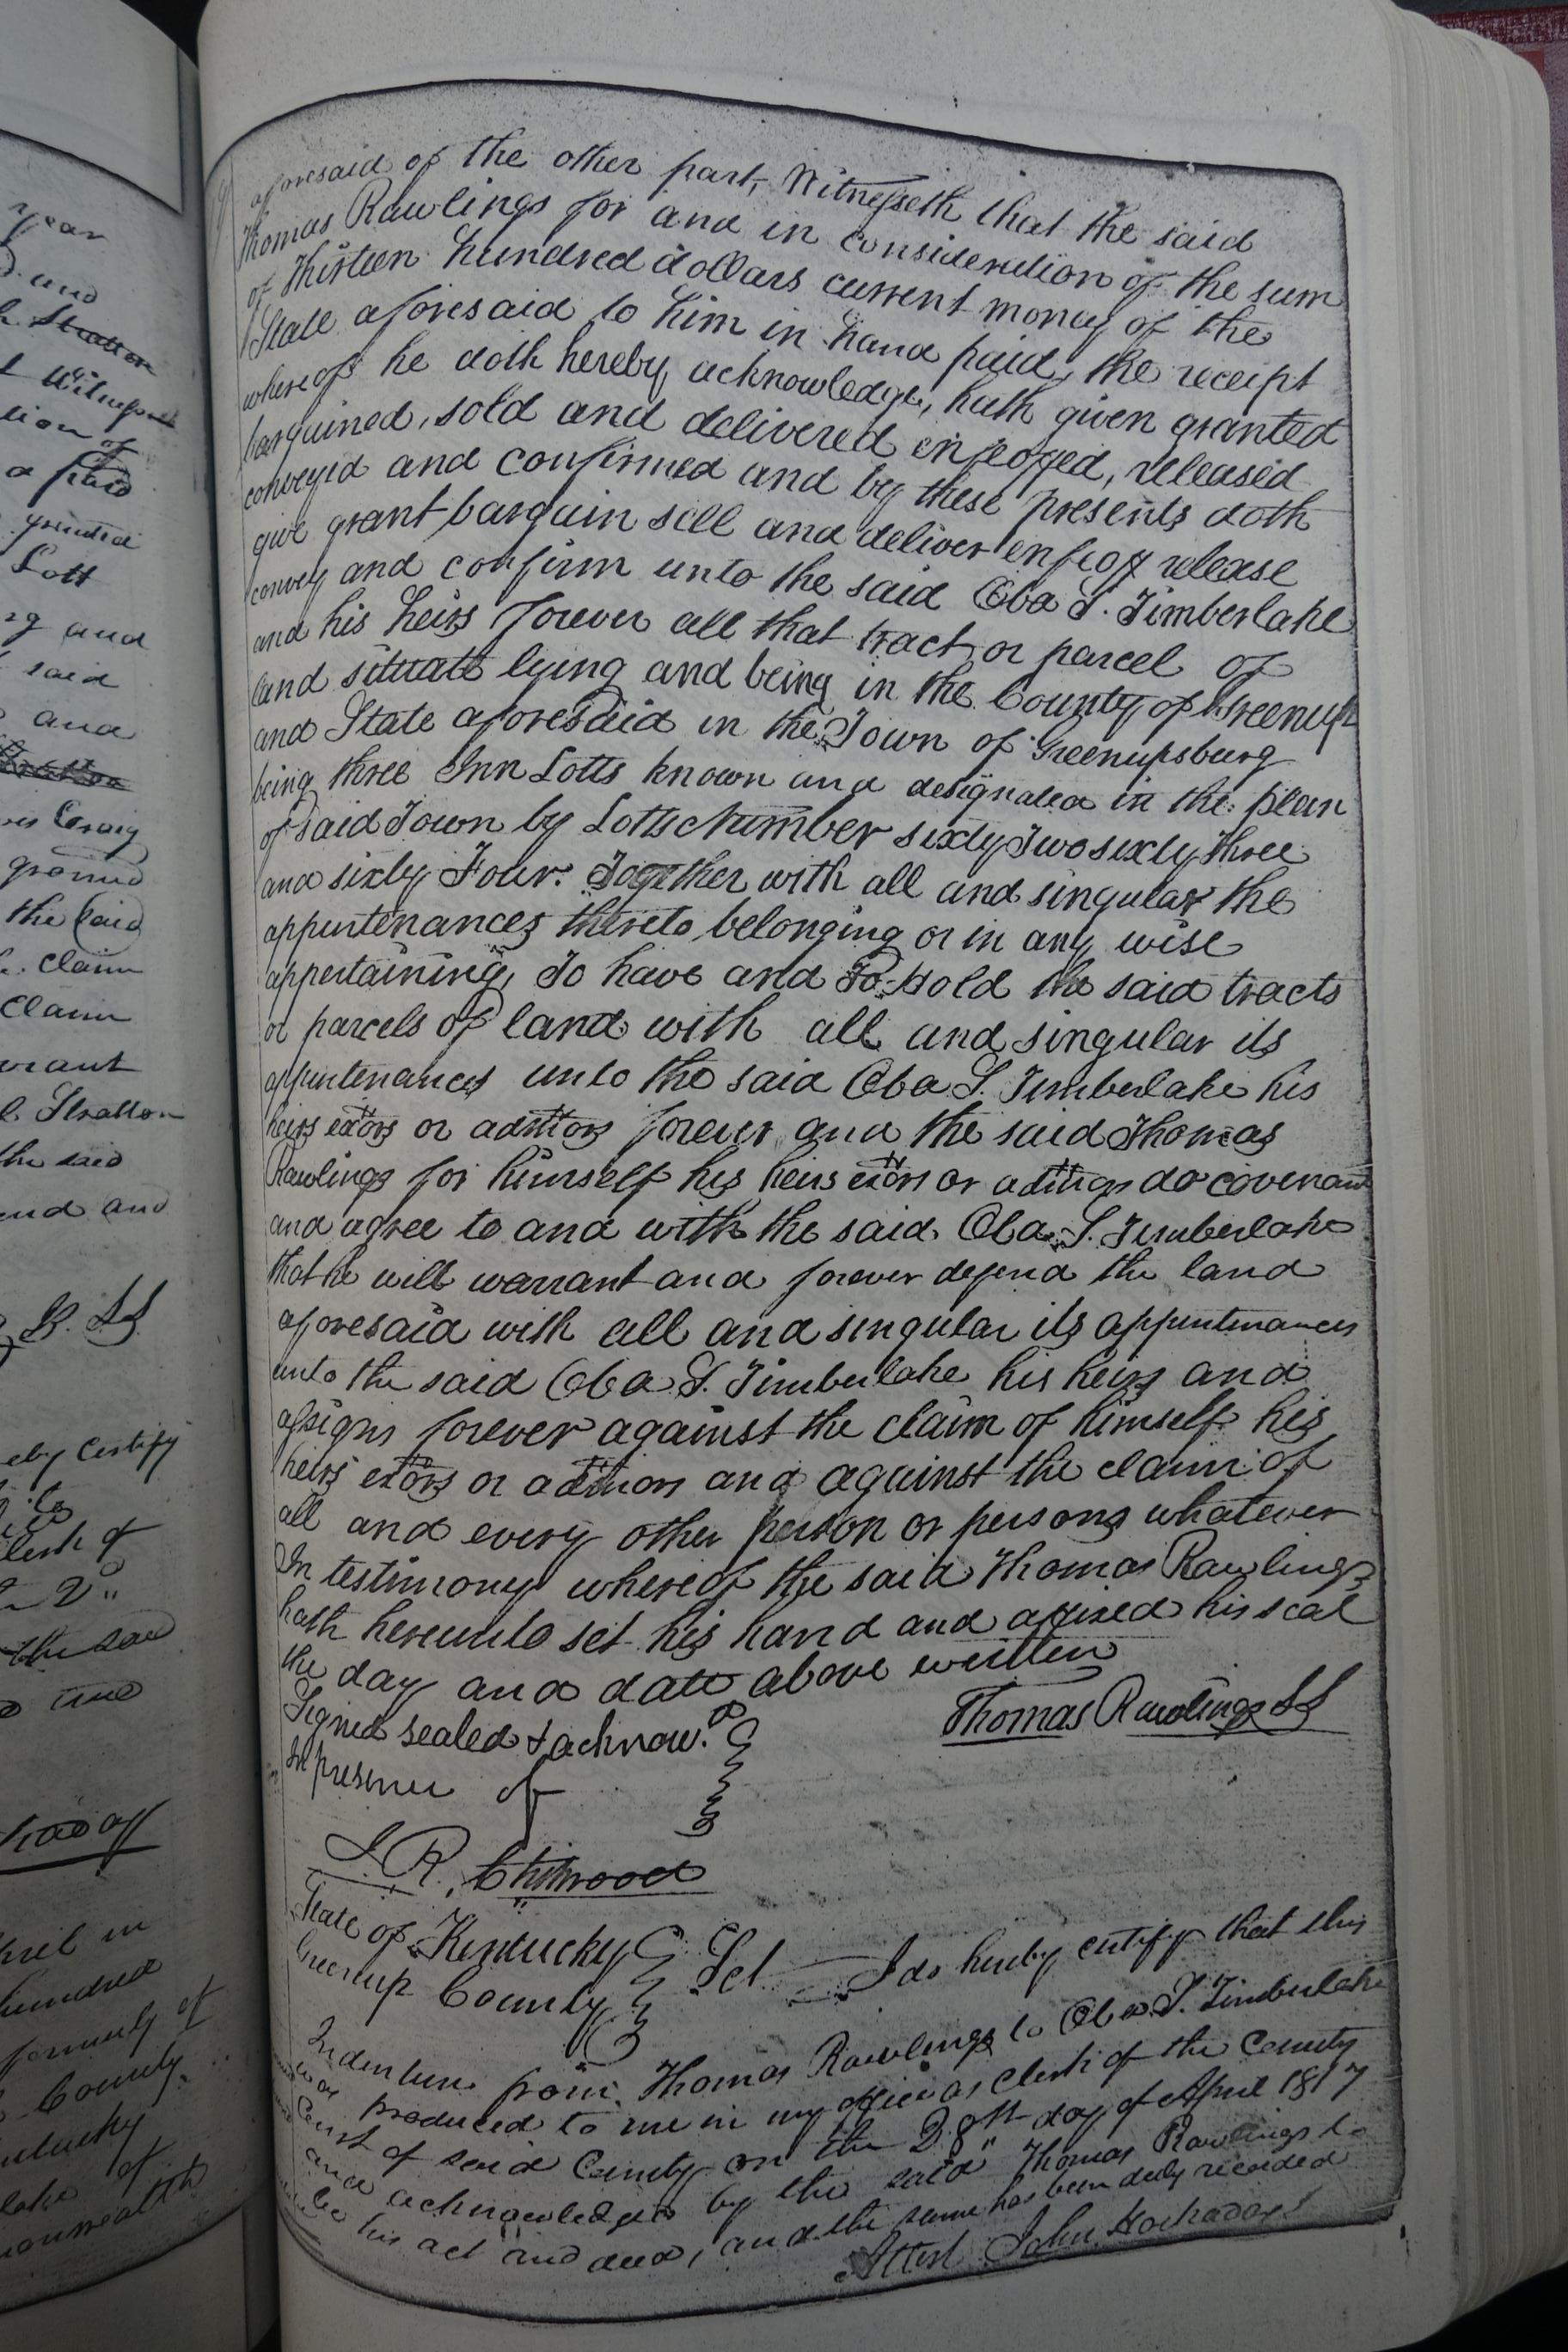 year
and
Stratton
Witnesseth
tion of
a paid
granted
Lott
ng and
said
and
Craig
ground
the said
claim
Claim
warrant
Stratton
the said
and and
B. LS
eby certify
Clerk of
the said
true
Hundred
formerly of
County
of
aforesaid of the other part, Witnesseth that the said
Thomas Rawlings for and in consideration of the sum
of Thirteen hundred dollars current money of the
State aforesaid to him in hand paid, the receipt
whereof he doth hereby acknowledge, hath given granted
barguined, sold and delivered enfeoffed, released
conveyed and confirmed and by these presents doth
give grant barguin sell and deliver enfeoff release
convey and confirm unto the said Oba S. Timberlake
and his heirs forever all that tract or parcel of
land situate lying and being in the County of Greenup
and State aforesaid in the Town of Greenupsburg
being three Inn Lotts known and designated in the plan
of said Town by Lotts Number sixty Two sixty three
and sixty Four. Together with all and singular the
appurtenances thereto belonging or in any wise
appertaining, To have and To Hold the said tracts
or parcels of land with all and singular its
appurtenances unto the said Oba S. Timberlake his
heirs extors or adttors forever and the said Thomas
Rawlings for himself his heirs extors or adttors do covenant
and agree to and with the said Oba S. Timberlake
that he will warrant and forever defend the land
aforesaid with all and singular its appurtenances
unto the said Oba S. Timberlake his heirs and
assigns forever against the claim of himself his
heirs extors or adttors and against the claim of
all and every other person or persons whatever
In testimony whereof the said Thomas Rawlings
hath hereunto set his hand and affixed his seal
the day and date above written
Signed sealed & acknow.d
In presence of
Thomas Rawlings LS
State of Kentucky
Greenup County Sct I do hereby certify that this
Indenture from Thomas Rawlings to Oba S. Timberlake
was produced to me in my office as Clerk of the County
Court of said County on the 28th day of April 1817
and acknowledged by the said Thomas Rawlings to
be his act and deed, and the same has been duly recorded
Attest John Hockaday